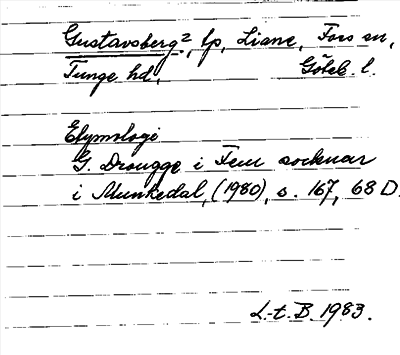 Gustavsberg², lp, Liane, Fors sn,
Tunge hd, Göteb. l.
Etymologi
G. Drougge i Fem socknar
i Munkedal, (1980), s. 167, 68 D.
L-t. B. 1983.